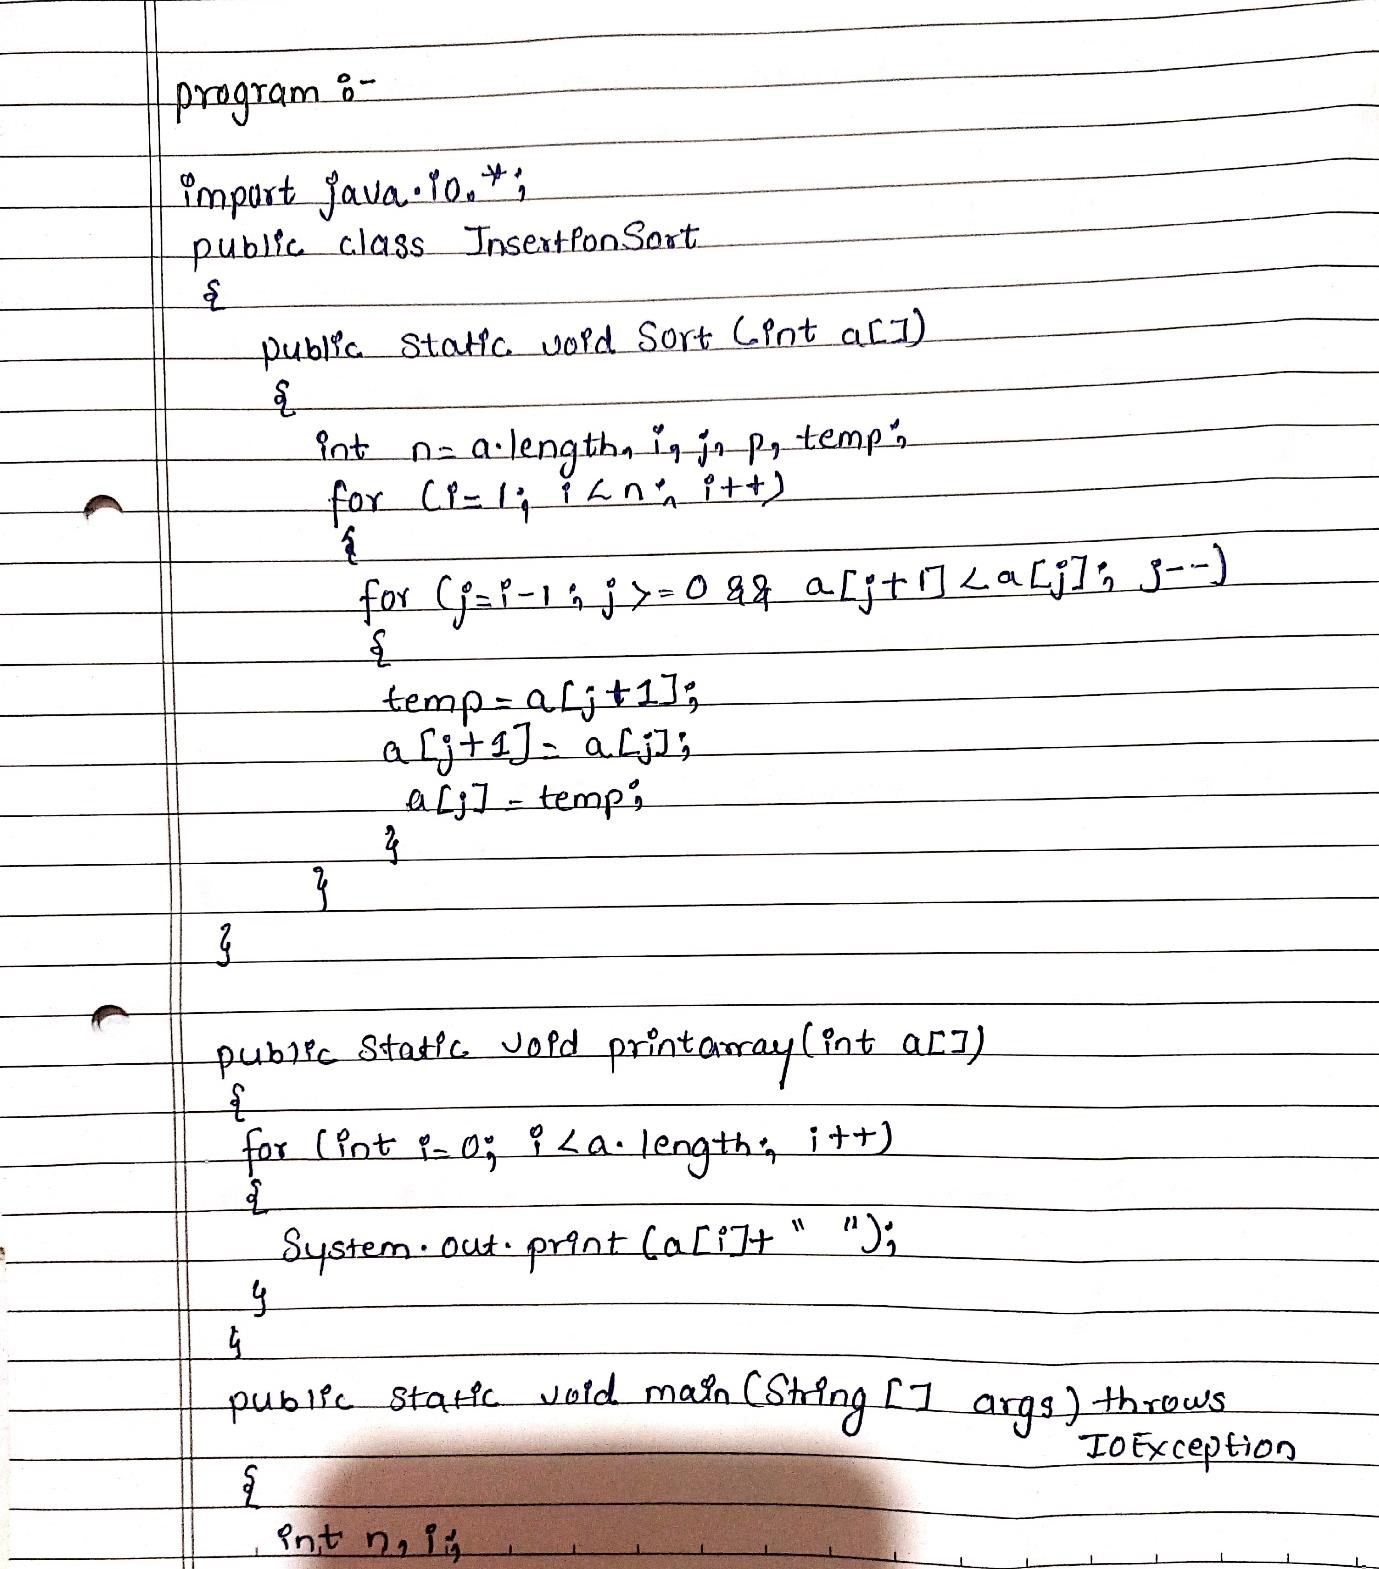 program :-
import java.io.*;
public class InsertionSort
{
public static void Sort (int a[])
{
int n= a.length, i, j, p, temp;
for (i=1; i<n; i++)
{
for (j=i-1; j>=0 && a[j+1]<a[j]; j--)
{
temp=a[j+1];
a[j+1]= a[j];
a[j] = temp;
}
}
}
public static void printarray(int a[])
{
for (int i=0; i<a.length; i++)
{
System.out.print (a[i]+" ");
}
}
public static void main (String [] args) throws
IOException
{
int n, i;